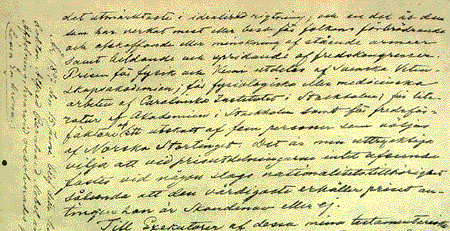 det utmärktaste i idealisk rigtning; och en del åt den
som har verkat mest eller best för folkens förbrödrande
och afskaffande eller minskning af stående armeer
samt bildande och spridande af fredskongresser.
Prisen för fysik och kemi utdelas af Svenska Veten-
skapsakademien; för fysiologiska eller medicinska
arbeten af Carolinska Institutet i Stockholm; för lite-
ratur af Akademien i Stockholm samt för fredsför-
fäktare af ett utskott af fem personer som väljas
af Norska Stortinget. Det är min uttryckliga
vilja att vid prisutdelningarne intet afseende
fästes vid någon slags nationalitetstillhörighet
sålunda att den värdigaste erhåller priset an-
tingen han är Skandinav eller ej.
Till Exekutorer af dessa mina testamentariska